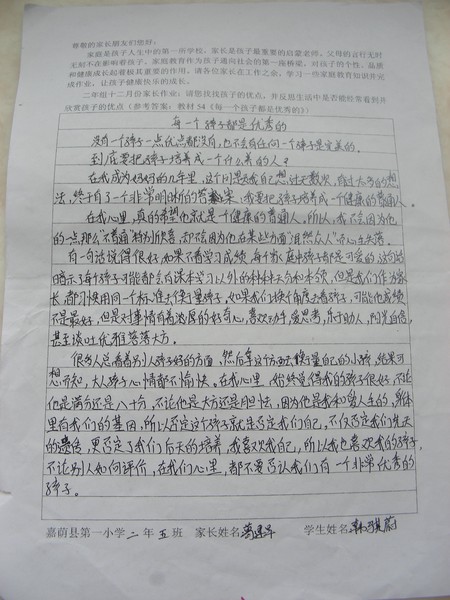 尊敬的家长朋友们您好。
家庭是孩子人生中的第一所学校，家长是孩子最重要的启蒙老师，父母的言行无时
无刻不在影响着孩子。家庭教育作为孩子通向社会的第一座桥梁，对孩子的个性、品质
和健康成长起着极其重要的作用，请各位家长在工作之余，学习一些家庭教育知识并完
成作业，让孩子健康快乐的成长。
二年组十二月份家长作业：请您找找孩子的优点，并反思生活中是否能经常看到并
欣赏孩子的优点（参考答案：教材54《每一个孩子都是优秀的》）
每一个孩子都是优秀的
没有一个孩子一点优点都没有，也不会有任何一个孩子是完美的。
到底要把孩子培养成一个什么差的人？
在我成为妈妈的几年里，这个问题我自己想过无数次，经过太多的想
法，终于有了一个非常明晰的答案，我要把孩子培养成一个健康的普通人。
在我心里，真的希望他就是一个健康的普通人，所以，我不会因为他
的一点那么"不普通"特别欣喜，却不会因为他在某些方面"泯然众人"而心生失落。
有一句话说得很好，如果不看学习成绩，每个家庭的孩子都是可爱的，这句话
暗示了每个孩子可能都会有课本学习以外的林林天分和本领，但是我们作为家
长，都习惯用同一个标准去衡量孩子，如果我们换个角度去看孩子，可能他成绩
不是最好，但是对事情有着浓厚的好奇心，喜欢动手，爱思考，乐于助人，阳光自信，
甚至谈吐优雅落落大方。
很多人总看着别人孩子好的方面，然后拿这个方面去衡量自己的小孩，结果可
想而知，大人孩子心情都不愉快，在我心里，始终觉得我的孩子很好，不论
他是满分还是八十分，不论他是大方还是胆怯，因为他是我和爱人生的，身体
里有我们的基因，所以否定这个孩子就是否定我们自己，不仅否定我们先天
的遗传，更否定了我们后天的培养，我喜欢我自己，所以我也喜欢我的孩子，
不论别人如何评价，在我们心里，都不要否认我们有一个非常优秀的
孩子。
嘉荫县第一小学二年五班 家长姓名 学生姓名